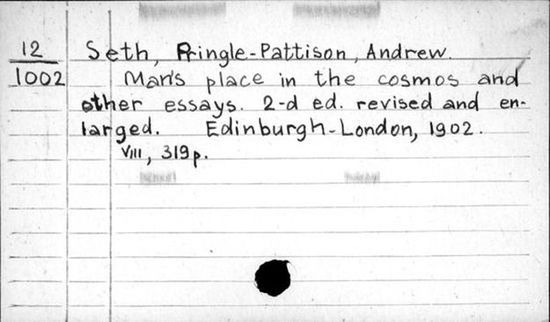 12
1002
Seth, Pringle-Pattison, Andrew.
Man's place in the cosmos and
other essays. 2-d ed. revised and en-
larged. Edinburgh-London, 1902.
VIII, 319 p.